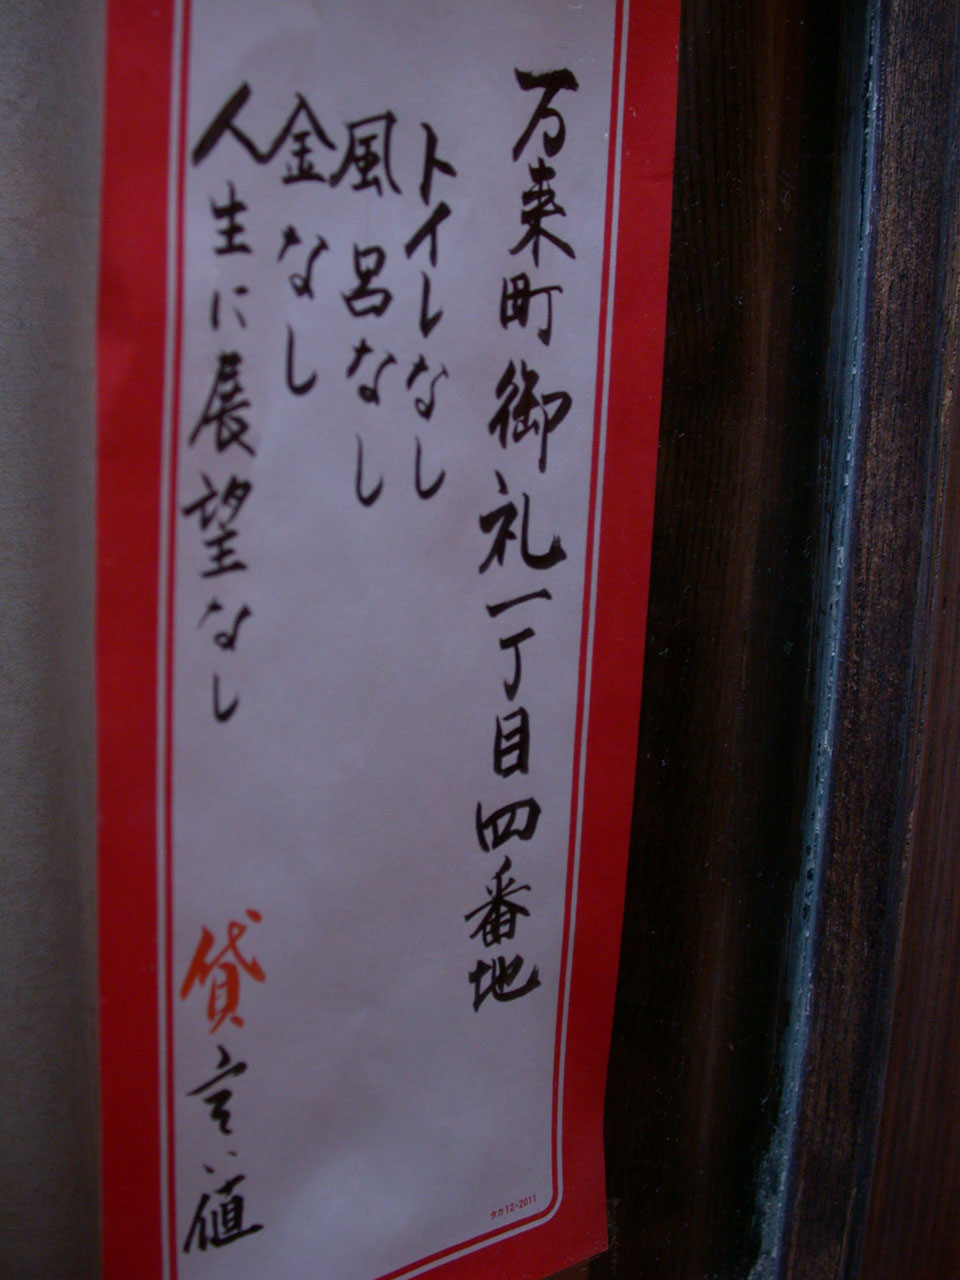 万来町御礼一丁目四番地
トイレなし
風呂なし
金なし
人生に展望なし
貸 言い値
タカ12-2011